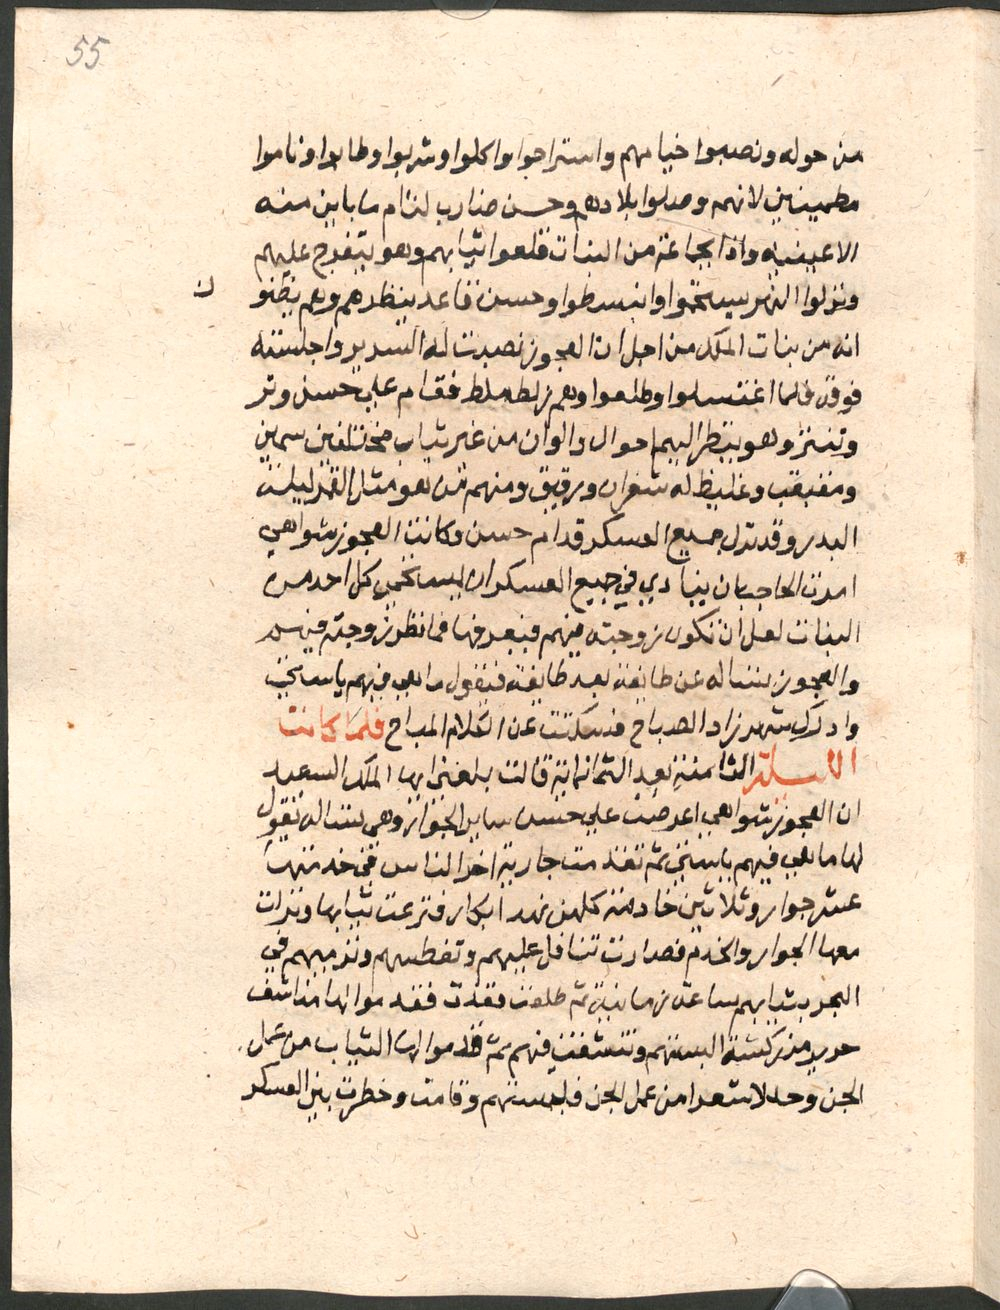 55
من حوله ونصبوا خيامهم واستراحوا واكلوا وشربوا وطابوا وناموا
مطمينين لانهم وصلوا بلادهم وحسن ضارب لثام ما باين منه
الا عينيه واذا بجماعة من البنات قلعوا ثيابهم وهو يتفرج عليهم
ونزلوا النهر يستحموا وانبسطوا وحسن قاعد ينظرهم وهم يظنو
ن
انه من بنات الملك من اجل ان العجوز نصبت له السرير واجلسته
فوقه فلما اغتسلوا وطلعوا وهم زلط ملط فقام علي حسن وتر
وتفنز وهو ينظر اليهم احوال والوان من غير ثياب مختلفين سمين
ومقبقب وغليظ له شفران ورقيق ومنهم من هو مثل القمر ليلة
البدر وقد نزل جميع العسكر قدام حسن وكانت العجوز شواهي
امرت الحاجب ان ينادي في جميع العسكر ان يستحمي كل احد من
البنات لعل ان تكون زوجته فيهم فيعرفها فما نظر زوجته فيهم
والعجوز تساله عن طايفة بعد طايفة فيقول ما هي فيهم يا ستي
وادرك شهرزاد الصباح فسكتت عن الكلام المباح فلما كانت
الليلة الثامنة بعد الثمانماية قالت بلغني ايها الملك السعيد
ان العجوز شواهي اعرضت علي حسن ساير الجوار وهي تساله يقول
لها ما هي فيهم يا ستي ثم تقدمت جارية اخر الناس في خدمتها
عشر جوار وثلاثين خادمة كلهن نهد ابكار فنزعت ثيابها ونزلت
معها الجوار والخدم فصارت تتدلل عليهم وتغطسهم وترميهم في
البحر بثيابهم ساعة زمانية ثم طلعت وقعدت فقدموا لها مناشف
حرير مزركشة البستهم وتنشفت فيهم ثم قدموا لها الثياب من عمل
الجن وحللا شعرا من عمل الجن فلبستهم وقامت وخطرت بين العسكر